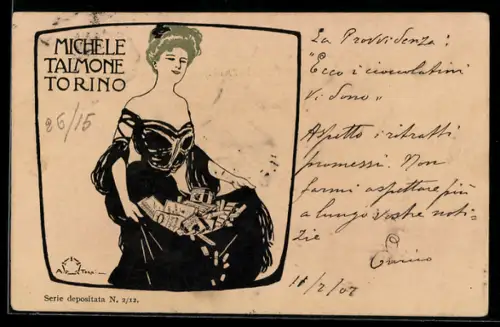 MICHELE
TALMONE
TORINO
26/15
Serie depositata N. 2/12.
La Provvidenza:
"Ecco i cioccolatini
vi dono"
Aspetto i ritratti
promessi. Non
farmi aspettare più
a lungo vostre noti-
zie
Enrico
11/2/07